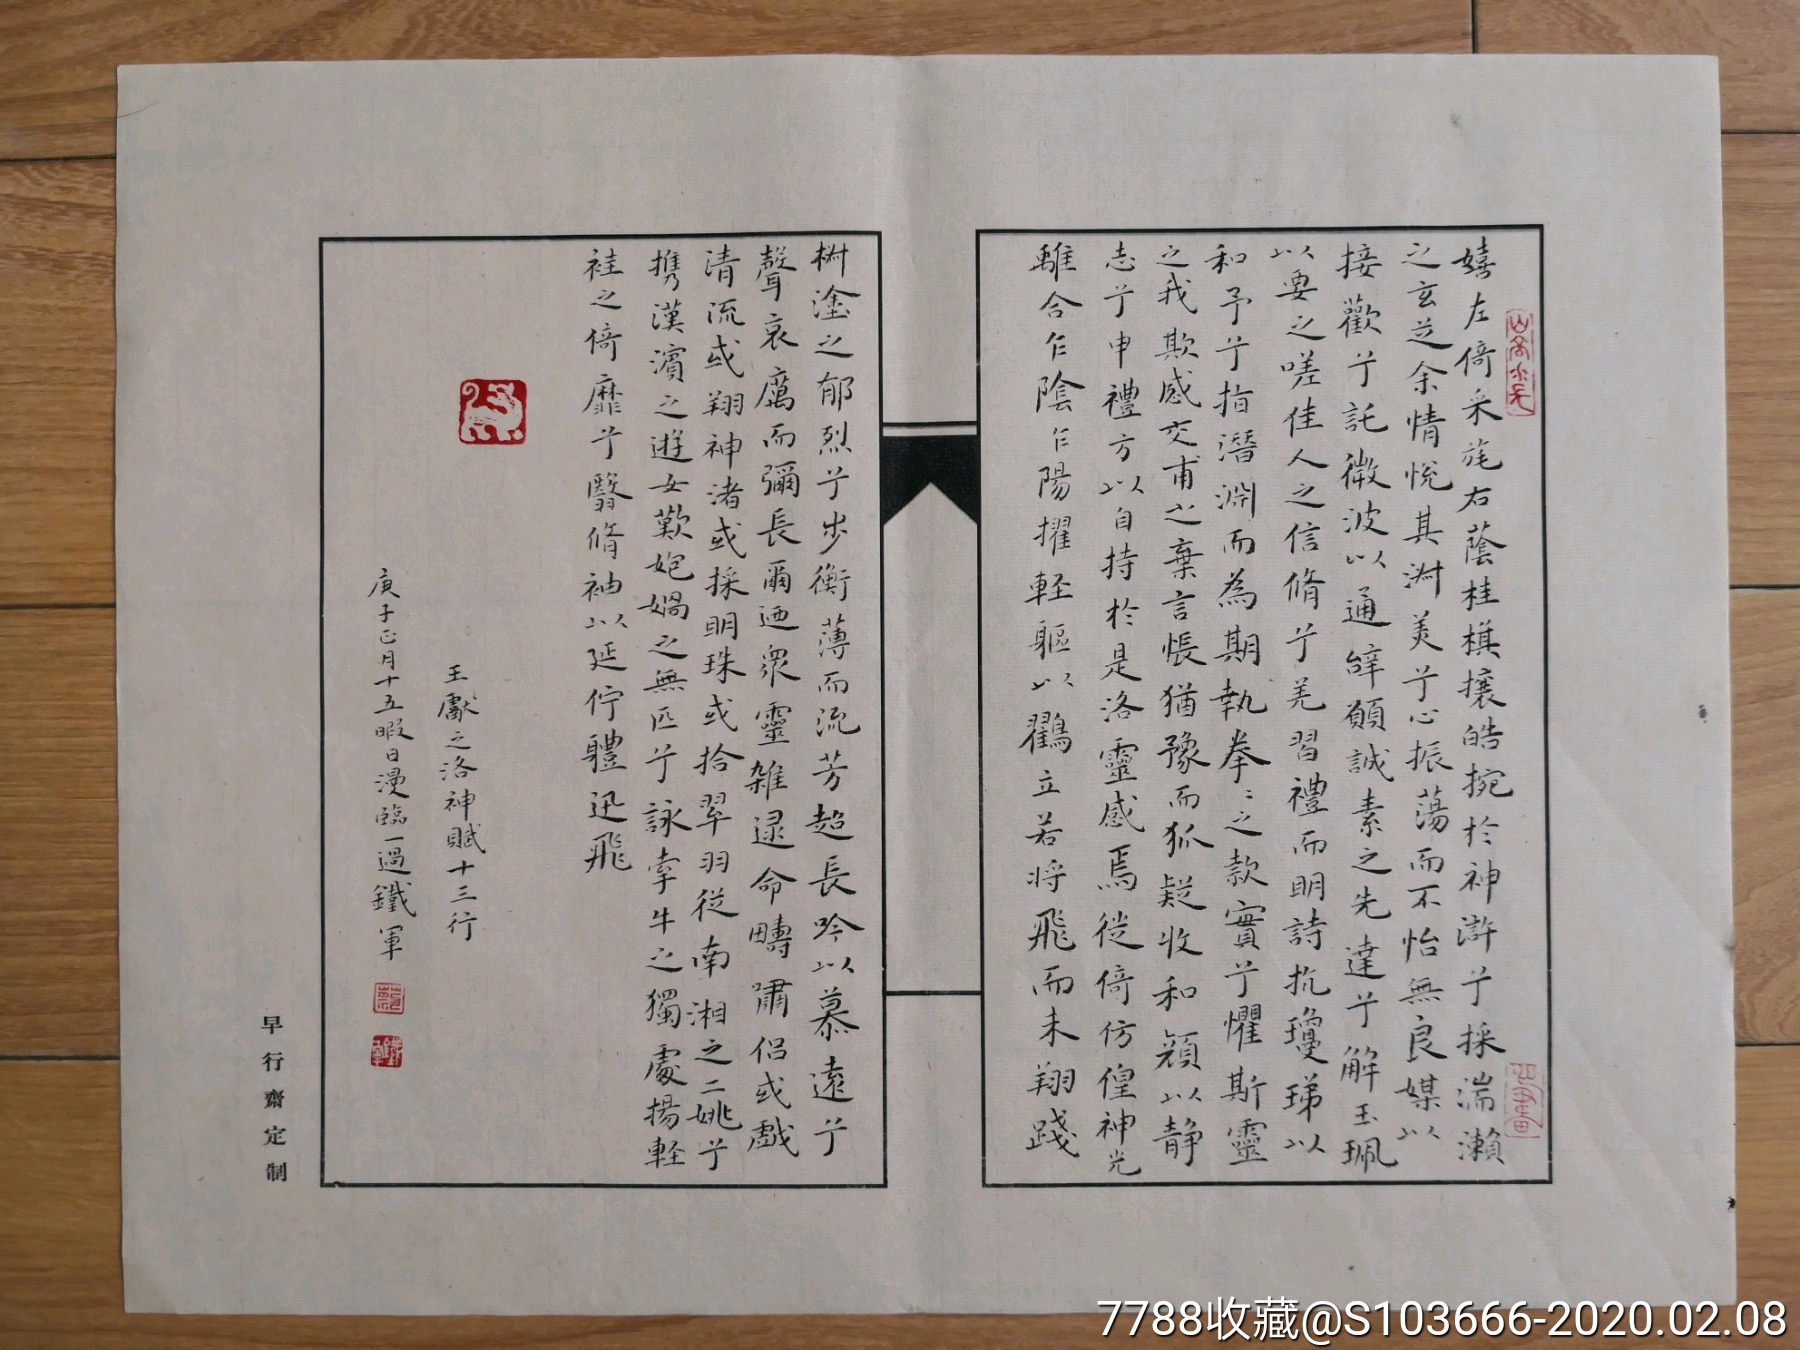 嬉左倚采旄右蔭桂旗攘皓捥於神滸兮採湍瀨
之玄芝余情悅其淑美兮心振蕩而不怡無良媒以
接歡兮託微波以通辭願誠素之先達兮解玉珮
以要之嗟佳人之信脩兮羌習禮而明詩抗瓊珶以
和予兮指潛淵而為期執拳〻之款實兮懼斯靈
之我欺感交甫之棄言悵猶豫而狐疑收和顏以静
志兮申禮方以自持於是洛靈感焉徙倚仿偟神光
離合乍陰乍陽擢軽軀以鶴立若將飛而未翔踐
椒塗之郁烈兮步衡薄而流芳超長吟以慕遠兮
聲哀厲而彌長爾迺衆靈雑遝命疇嘯侶或戲
清流或翔神渚或採明珠或拾翠羽從南湘之二姚兮
携漢濱之遊女歎匏媧之無匹兮詠牽牛之獨處揚軽
袿之倚靡兮翳脩袖以延佇軆迅飛
王獻之洛神賦十三行
庚子正月十五暇日漫臨一過鐵軍
早行齋定制
7788收藏@S103666-2020.02.08